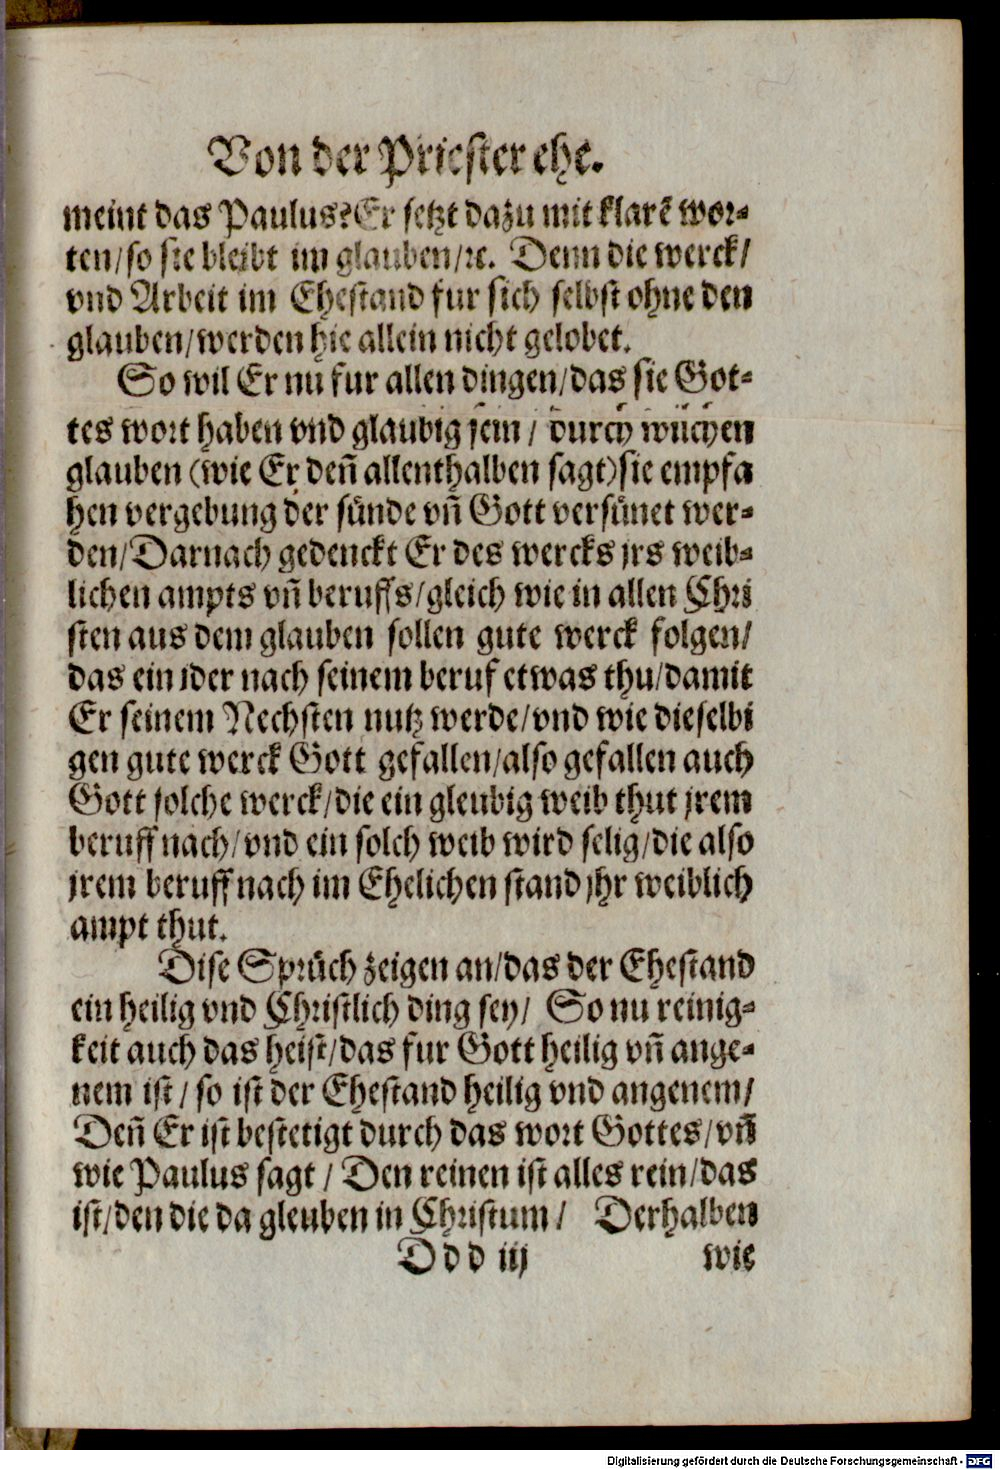 Von der Priester ehe.
meint das Paulus? Er setzt dazu mit klarē wor-
ten/ so sie bleibt im glauben/ ꝛc. Denn die werck/
vnd Arbeit im Ehestand fur sich selbst ohne den
glauben/ werden hie allein nicht gelobet.
So wil Er nu fur allen dingen/ das sie Got-
tes wort haben vnd glaubig sein / durch wilchen
glauben (wie Er deñ allenthalben sagt) sie empfa
hen vergebung der sünde vñ Gott versünet wer-
den/ Darnach gedenckt Er des wercks jrs weib-
lichen ampts vñ beruffs/ gleich wie in allen Chri
sten aus dem glauben sollen gute werck folgen/
das ein ider nach seinem beruf etwas thu/ damit
Er seinem Nechsten nutz werde/ vnd wie dieselbi
gen gute werck Gott gefallen/ also gefallen auch
Gott solche werck/ die ein gleubig weib thut jrem
beruff nach/ vnd ein solch weib wird selig/ die also
jrem beruff nach im Ehelichen stand jhr weiblich
ampt thut.
Dise Sprüch zeigen an/ das der Ehestand
ein heilig vnd Christlich ding sey/ So nu reinig-
keit auch das heist/ das fur Gott heilig vñ ange-
nem ist/ so ist der Ehestand heilig vnd angenem/
Deñ Er ist bestetigt durch das wort Gottes/ vñ
wie Paulus sagt / Den reinen ist alles rein/ das
ist/ den die da gleuben in Christum / Derhalben
D d d iij wie
Digitalisierung gefördert durch die Deutsche Forschungsgemeinschaft - DFG